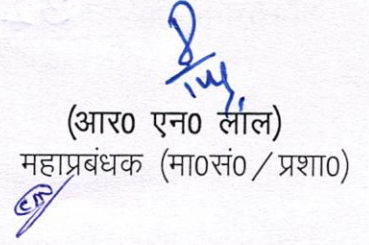 (आर0 एन0 लाल)
महाप्रबंधक (मा0सं0 / प्रशा0)